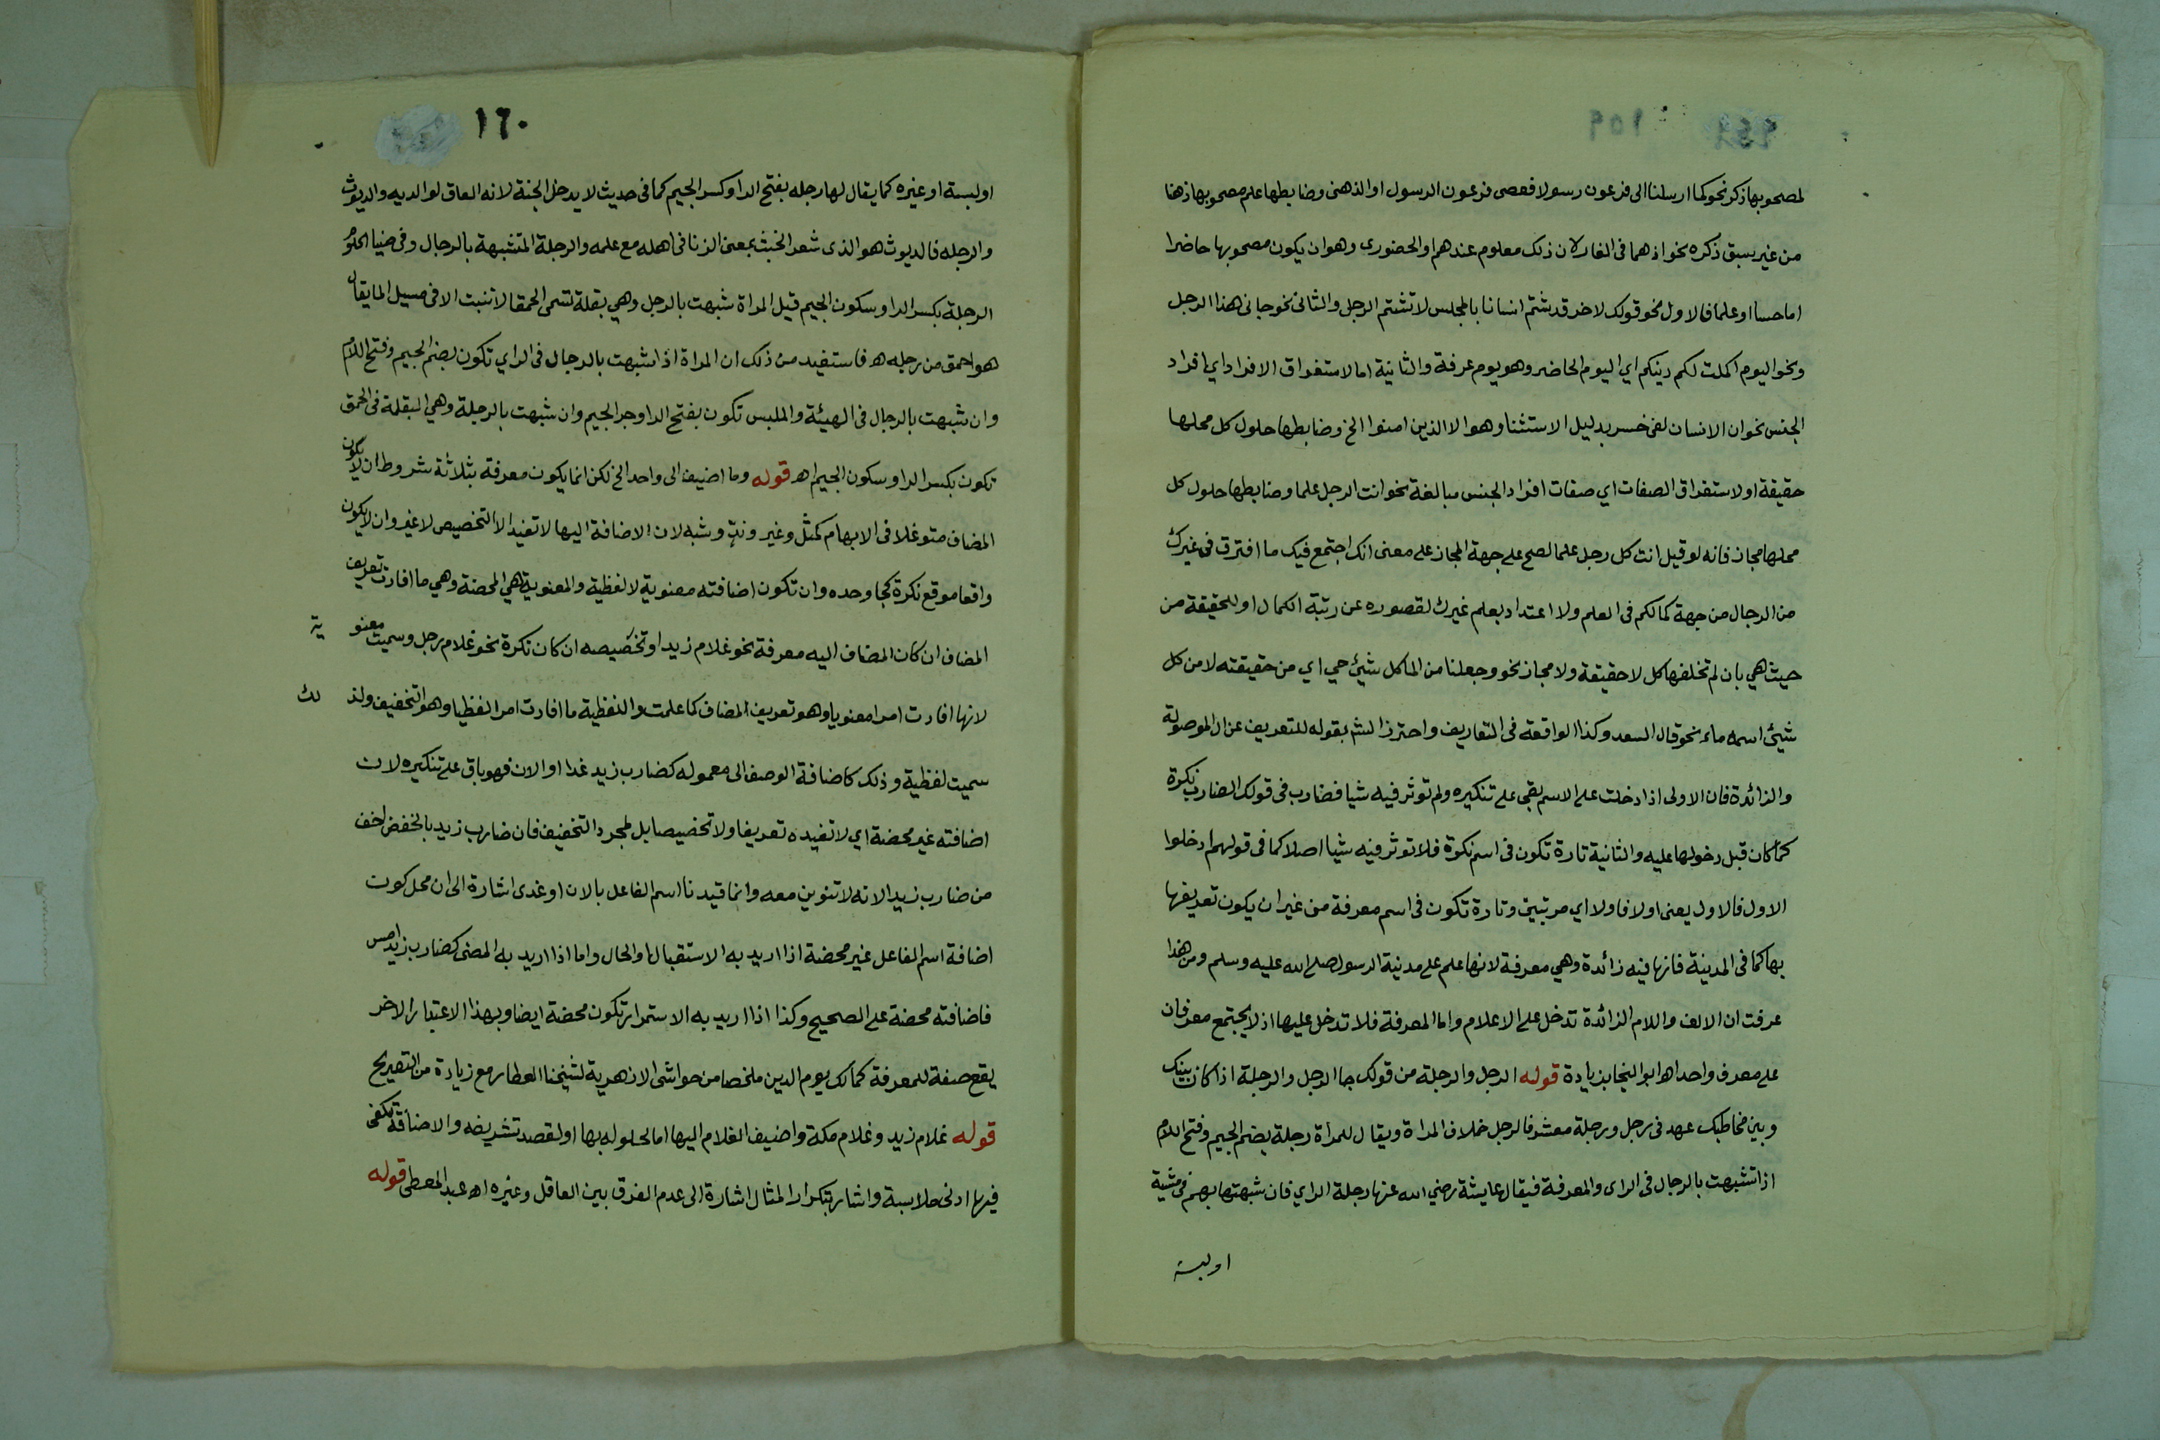 ١٥٩
لمصحوبها ذكر نحو كما ارسلنا الى فرعون رسولا فعصى فرعون الرسول او الذهنى وضابطها علم مصحوبها ذهنا
من غير سبق ذكره نحو اذ هما فى الغار لان ذلك معلوم عندهم او الحضورى وهو ان يكون مصحوبها حاضرا
اما حسا او علما فالاول نحو قولك لاخر قد يشتم انسانا بالمجلس لا تشتم الرجل والثانى نحو جانى هذا الرجل
ونحو اليوم اكملت لكم دينكم اي اليوم الحاضر وهو يوم عرفة والثانية اما لاستغراق الافراد اي افراد
الجنس نحو ان الانسان لفى خسر بدليل الاستثنا وهو الا الذين امنوا الخ وضابطها حلول كل محلها
حقيقة او لاستغراق الصفات اي صفات افراد الجنس مبالغة نحو انت الرجل علما وضابطها حلول كل
محلها مجاز فانه لو قيل انت كل رجل علما لصح على جهة المجاز على معنى انك اجتمع فيك ما افترق فى غيرك
من الرجال من جهة كمالكم فى العلم ولا اعتداد بعلم غيرك لقصوره عن رتبة الكمال او للحقيقة من
حيث هي بان لم تخلفها كل لا حقيقة ولا مجاز نحو وجعلنا من الما كل شيئ حي اي من حقيقته لا من كل
شيئ اسمه ماء نحو قال السعد وكذا الواقعة فى التعاريف واحترز الش بقوله للتعريف عن ال الموصولة
والزائدة فان الاولى اذا دخلت على الاسم بقى على تنكيره ولم توثر فيه شيا فضارب فى قولك الضارب نكرة
كما كان قبل دخولها عليه والثانية تارة تكون فى اسم نكرة فلا توثر فيه شيا اصلا كما فى قولهم ادخلوا
الاول فالاول يعنى اولا فاولا اي مرتبين وتارة تكون فى اسم معرفة من غير ان يكون تعريفها
بها كما فى المدينة فانها فيه زائدة وهي معرفة لانها علم على مدينة الرسول صلى الله عليه وسلم ومن هذا
عرفت ان الالف واللام الزائدة تدخل على الاعلام واما المعرفة فلا تدخل عليها اذ لا يجتمع معرفان
على معرف واحد اهـ ابو النجا بزيادة قوله الرجل والرجلة من قولك جا الرجل والرجلة اذا كان بينك
وبين مخاطبك عهد فى رجل ورجلة معشر فالرجل خلاف المراة ويقال للمراة رجلة بضم الجيم وفتح اللام
اذا تشبهت بالرجال فى الراى والمعرفة فيقال عايشة رضي الله عنها رجلة الراي فان شبهتها بهم فى مشية
او لبسة
١٦٠
او لبسة او غيره كما يقال لها رجله بفتح الرا وكسر الجيم كما فى حديث لا يدخل الجنة لانه العاق لوالديه والديوث
والرجله فالديوث هو الذى شعر الخبث بمعنى الزنا فى اهله مع علمه والرجلة المتشبهة بالرجال وفى ضيا الحلوم
الرجلة بكسر الرا وسكون الجيم قيل المراة شبهت بالرجل وهي بقلة تسمى الحمقا لا تنبت الا فى مسيل الما يقال
هو احمق من رجله هـ فاستفيد من ذلك ان المراة اذا شبهت بالرجال فى الراي تكون بضم الجيم وفتح اللام
وان شبهت بالرجال فى الهيئة والملبس تكون بفتح الرا وجر الجيم وان شبهت بالرجلة وهي البقلة فى الحمق
تكون بكسر الرا وسكون الجيم اهـ قوله وما اضيف الى واحد الخ لكن انما يكون معرفة بثلاثة شروط ان لا يكون
المضاف متوغلا فى الابهام كمثل وغير وشبه لان الاضافة اليها لا تفيد الا التخصيص لا غير وان لا يكون
واقعا موقع نكرة كجا وحده وان تكون اضافته معنوية لا لفظية والمعنوية هي المحضة وهي ما افادت تعريف
المضاف ان كان المضاف اليه معرفة نحو غلام زيد او تخصيصه ان كان نكرة نحو غلام رجل وسميت معنوية
لانها افادت امرا معنويا وهو تعريف المضاف كما علمت واللفظية ما افادت امرا لفظيا وهو التخفيف ولذلك
سميت لفظية وذلك كاضافة الوصف الى معموله كضارب زيد غدا او الان فهو باق على تنكيره لان
اضافته غير محضة اي لا تفيده تعريفا ولا تخصيصا بل لمجرد التخفيف فان ضارب زيد بالخفض اخف
من ضارب زيدا لانه لا تنوين معه وانما قيدنا اسم الفاعل بالان او غدى اشارة الى ان محل كون
اضافة اسم الفاعل غير محضة اذا اريد به الاستقبال او الحال واما اذا اريد به المضى كضارب زيد امس
فاضافته محضة على الصحيح وكذا اذا اريد به الاستمرار تكون محضة ايضا وبهذا الاعتبار الاخر
يقع صفة للمعرفة كمالك يوم الدين ملخصا من حواشى الازهرية لشيخنا العطار مع زيادة من التصريح
قوله غلام زيد وغلام مكة واضيف الغلام اليها اما لحلوله بها او لقصد تشريفه والاضافة تكفى
فيها ادنى ملابسة واشار بتكرار المثال اشارة الى عدم الفرق بين العاقل وغيره اهـ عبد المعطى قوله